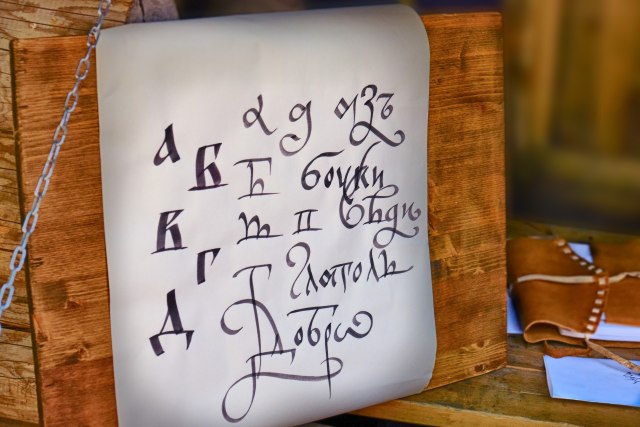 а а а азъ
Б Б боуки
В в в Вѣди
Г Г Глаголь
Д Д Добрѡ